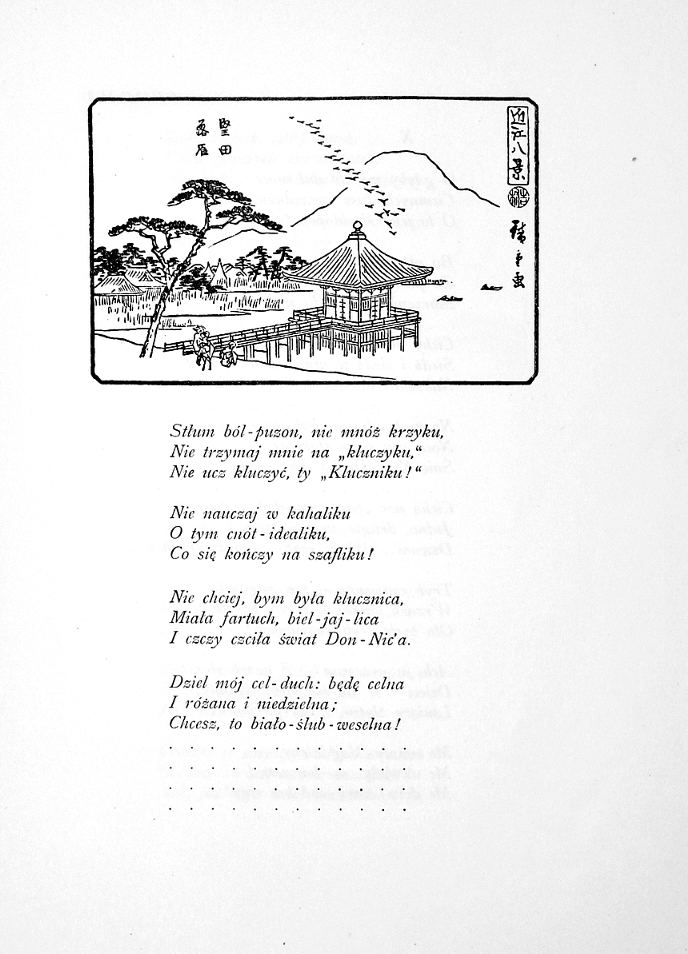 近江八景
堅田
落雁
Stłum ból-puzon, nie mnóż krzyku,
Nie trzymaj mnie na „kluczyku,“
Nie ucz kluczyć, ty „Kluczniku!“
Nie nauczaj w kahaliku
O tym cnót-idealiku,
Co się kończy na szafliku!
Nie chciej, bym była klucznica,
Miała fartuch, biel-jaj-lica
I czczy czciła świat Don-Nic'a.
Dziel mój cel-duch: będę celna
I różana i niedzielna;
Chcesz, to biało-ślub-weselna!
. . . . . . . . . . . .
. . . . . . . . . . . .
. . . . . . . . . . . .
. . . . . . . . . . . .